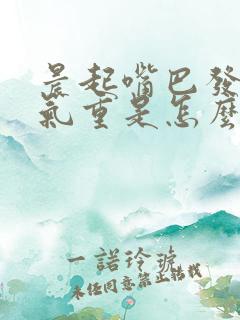 晨起嘴巴發
氣重是怎麼
一諾玲琥
未经同意禁止转载